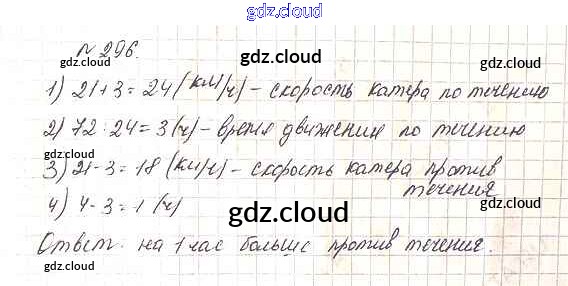 gdz.cloud
№ 296.
gdz.cloud gdz.cloud
1) 21+3=24 (км/ч) – скорость катера по течению
gdz.cloud
2) 72:24=3 (ч) – время движения по течению
gdz.cloud gdz.cloud
3) 21-3=18 (км/ч) – скорость катера против
течения
4) 4-3=1 (ч)
gdz.cloud
Ответ: на 1 час больше против течения.
gdz.cloud gdz.cloud